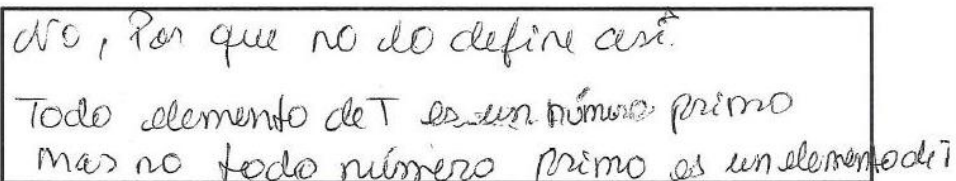 No, Por que no lo define así.
Todo elemento de T es un número primo
mas no todo número primo es un elemento de T